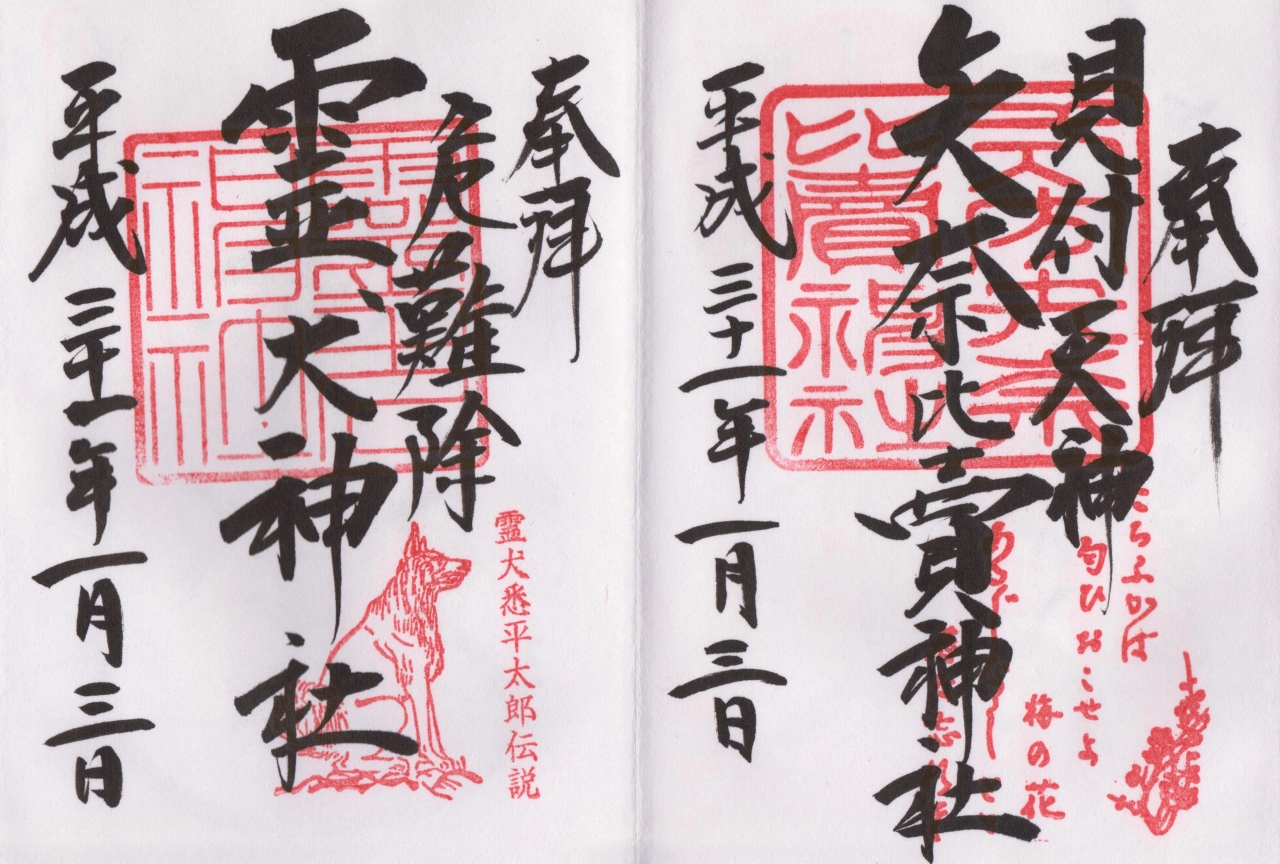 奉拝
見付天神
矢奈比賣神社
平成三十一年一月三日
こちふかば
匂ひおこせよ
梅の花
奉拝
危難除
霊犬神社
平成三十一年一月三日
霊犬悉平太郎伝説